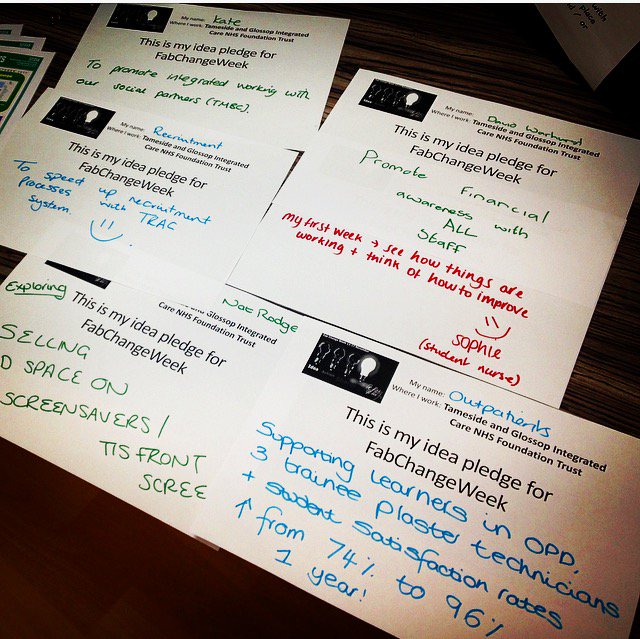 My name: Kate
Where I work: Tameside and Glossop Integrated
Care NHS Foundation Trust
This is my idea pledge for
FabChangeWeek
To promote integrated working with
our social partners (TMBC).
My name: Recruitment
Where I work: Tameside and Glossop Integrated
Care NHS Foundation Trust
This is my idea pledge for
FabChangeWeek
To speed up recruitment
processes with TRAC
system
My name: David
Where I work: Tameside and Glossop Integrated
Care NHS Foundation Trust
This is my idea pledge for
FabChangeWeek
Promote Financial
awareness with
ALL
Staff
my first week → see how things are
working + think of how to improve
SOPHIE
(student nurse)
Exploring
Nat Rodge
Tameside and Glossop Integrated
Care NHS Foundation Trust
This is my idea pledge for
FabChangeWeek
SELLING
D SPACE ON
SCREENSAVERS/
TIS FRONT
SCREE
Idea
My name: Outpatients
Where I work: Tameside and Glossop Integrated
Care NHS Foundation Trust
This is my idea pledge for
FabChangeWeek
Supporting learners in OPD.
3 trainee plaster technicians
+ student satisfaction rates
↑ from 74% to 96%
1 year!